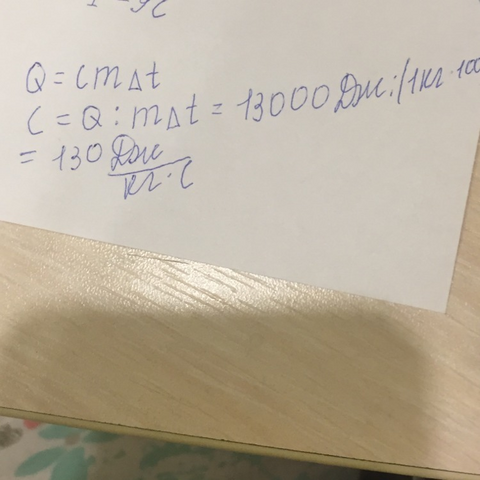 Q = cm∆t
C = Q : m∆t = 13000 Дж : (1кг · 100
= 130 Дж
кг · C